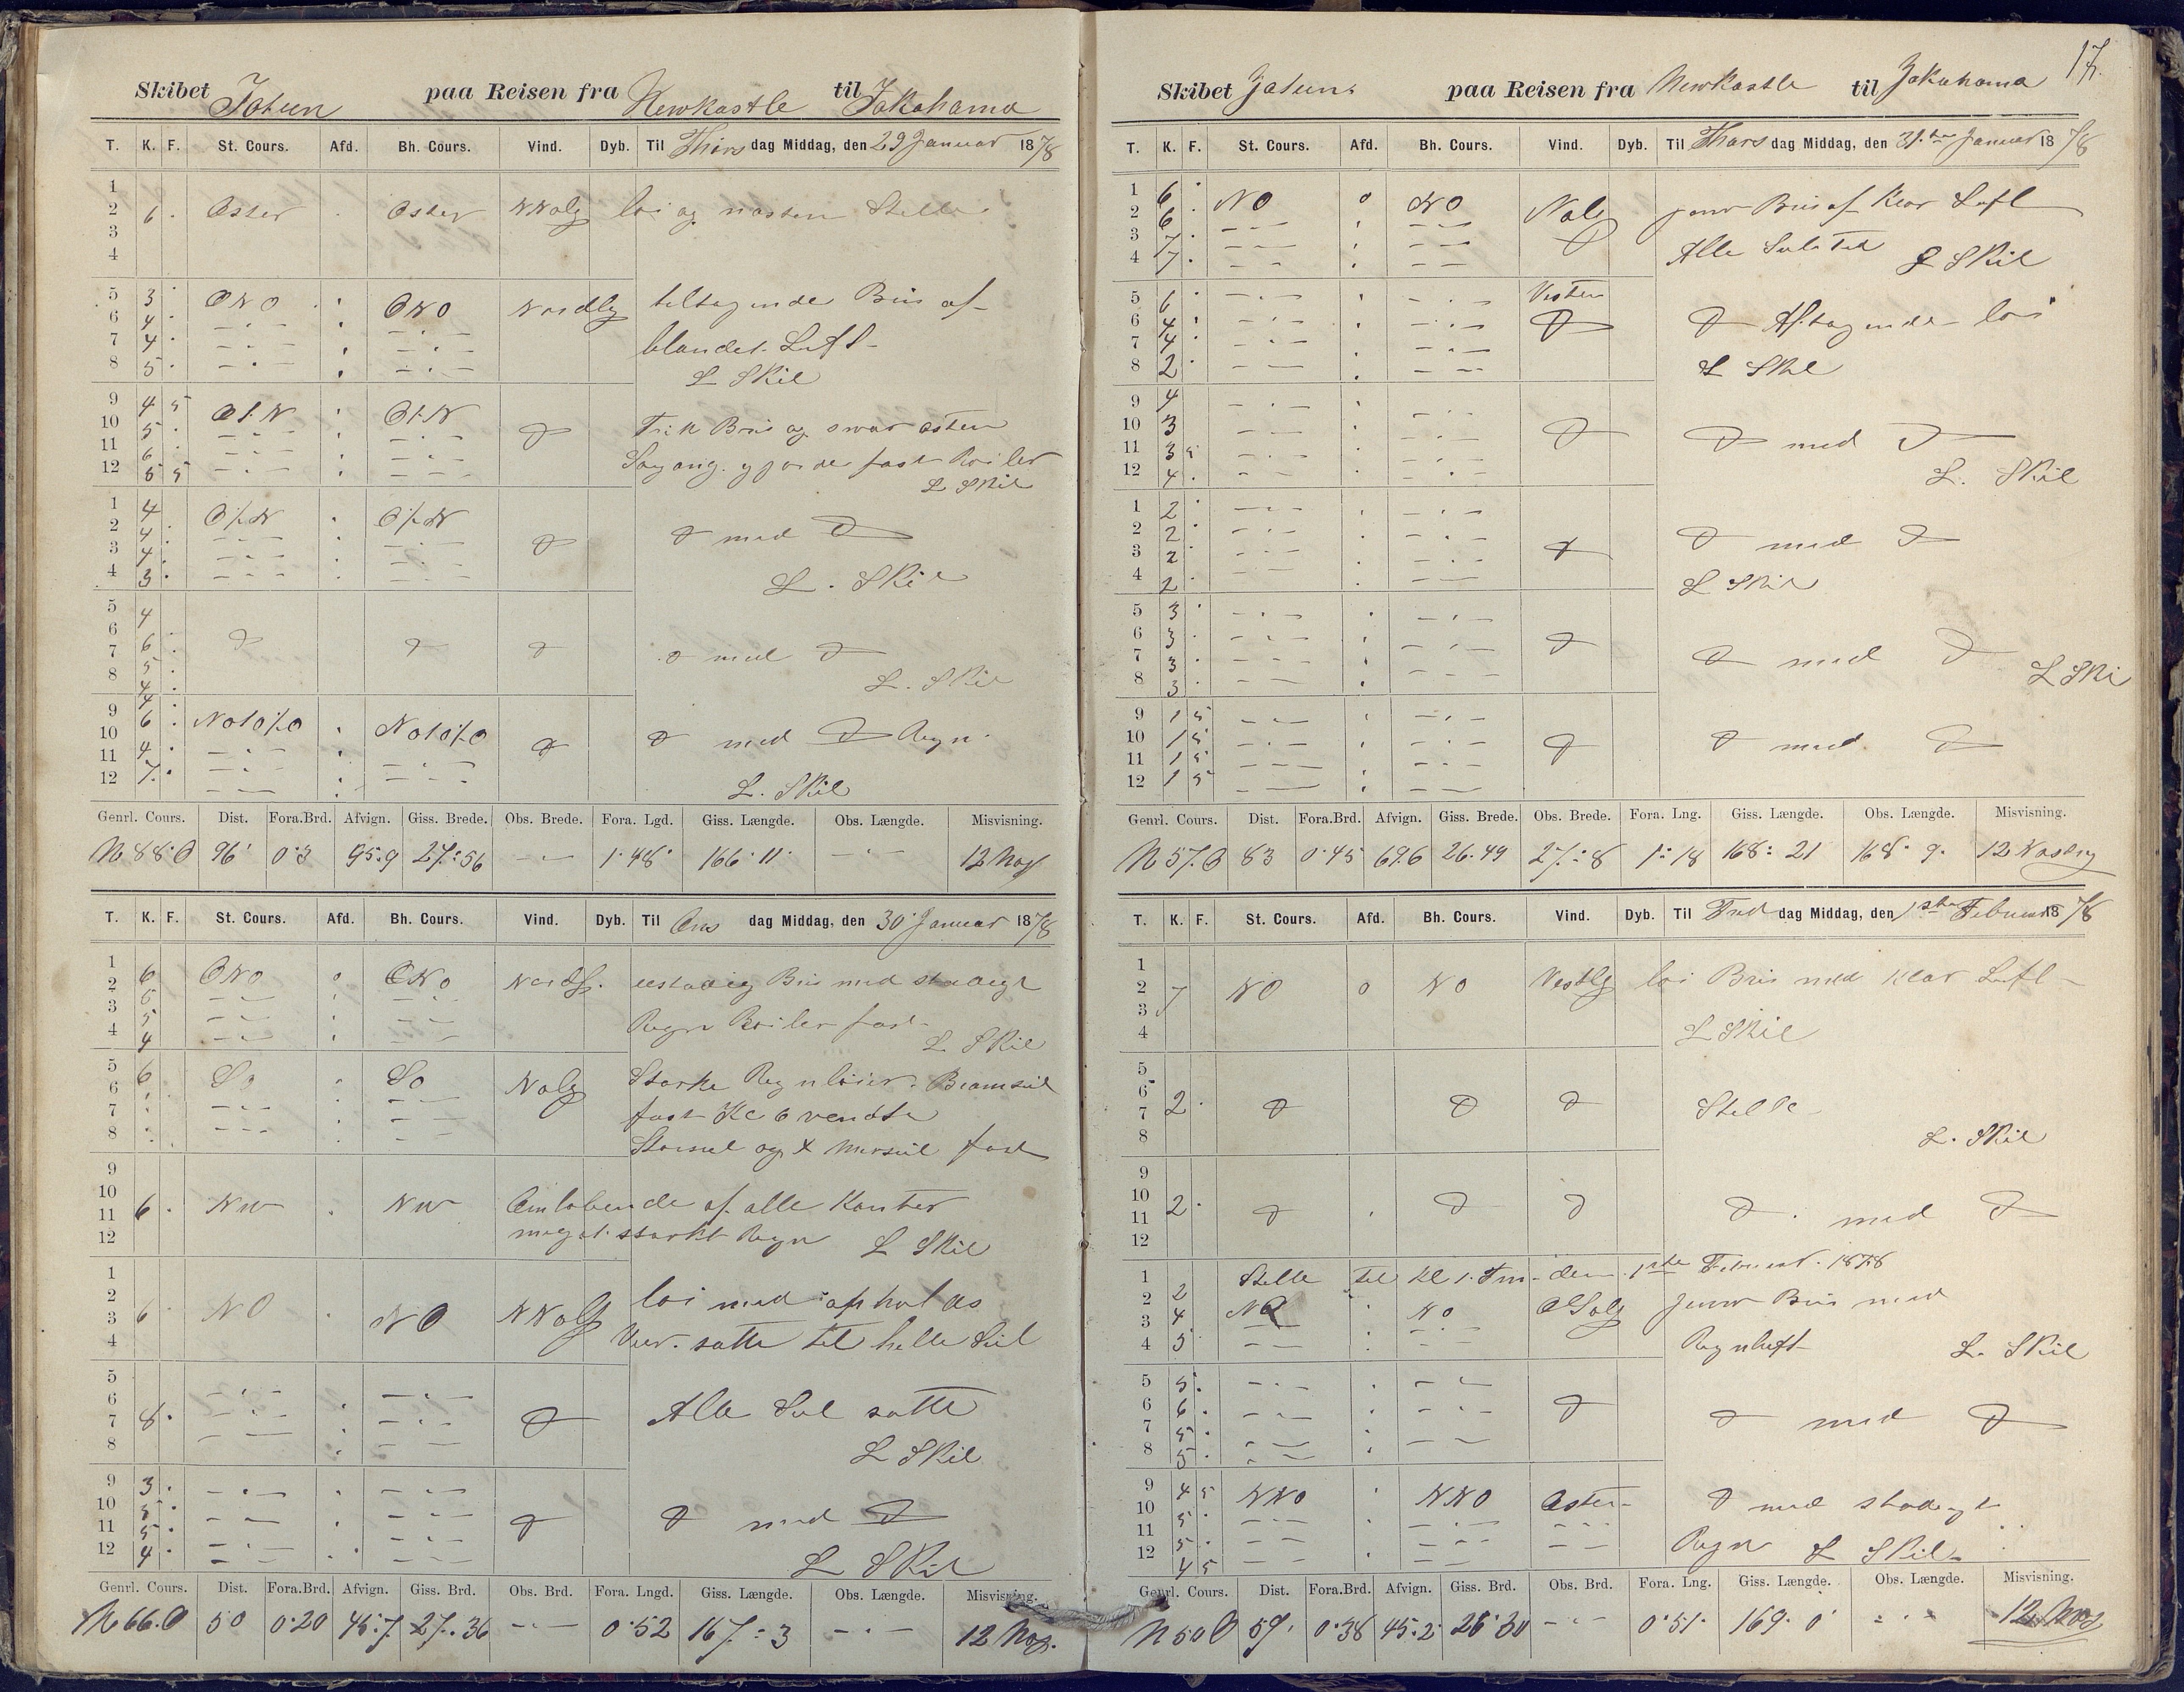 Skibet Jotun paa Reisen fra Newkastle til Jakohama
T. K. F. St. Cours. Afd. Bh. Cours. Vind. Dyb. Til Thirs dag Middag, den 29 Januar 1878
1
2 6 . Oster . Oster NNolg loi og nasten Stelle.
3
4
5 3 . ONO . ONO Nordlg tiltagende Bris af
6 4 . — . —
7 4 . — . — blandet Luft
8 5 . — . — L Skil
9 4 5 O t. N . O t. N
10 5 . Frik Bris og svar osten
11 6 . Søgang. gjorde fast Roiler
12 5 5 L Skil
1 4 O t. N . O t. N
2 4 . med
3 4 .
4 3 . L. Skil
5 4
6 6 .
7 5 . med
8 4 . L. Skil
9 4
10 6 . No t O ½ O . No t O ½ O
11 4 . med Regn.
12 7 . L. Skil
Genrl. Cours. Dist. Fora.Brd. Afvign. Giss. Brede. Obs. Brede. Fora. Lgd. Giss. Længde. Obs. Længde. Misvisning.
N 88° O 96' 0°3 95.9 27°56 — 1°48' 166°11' — 12 Nog
T. K. F. St. Cours. Afd. Bh. Cours. Vind. Dyb. Til Ons dag Middag, den 30 Januar 1878
1 6 ONO o ONO Nordlg. ustadig Bris med stadigt
2 6
3 5 Regn Roiler fast
4 4 L Skil
5 6 So So Nolg Starke Regnbøier. Bramseil
6
7 fast Kl 6 vendte
8 Storseil og X Merseil fast
9
10 Omlobende af alle Kanter
11 6 . NW . NW
12 meget starkt Regn L Skil
1
2 loi med ophold
3 6 NO . NO NNolg
4 Veir. satte til helle Seil
5
6
7 8. Alle Seil satte
8 L Skil
9 3 .
10 5 .
11 5 . med
12 4 . L Skil
Genrl. Cours. Dist. Fora.Brd. Afvign. Giss. Brd. Obs. Brd. Fora. Lngd. Giss. Længde. Obs. Længde. Misvisning.
N 66.O 50 0°20 45.7 27.36 — 0°52 167°3 — 12 Nog.
17.
Skibet Jotun paa Reisen fra Newkastle til Jakohama
T. K. F. St. Cours. Afd. Bh. Cours. Vind. Dyb. Til Thors dag Middag, den 31.te Januar 1878
1 6 . NO o NO Nolg jevn Bris af Klar Luft
2 6
3 7 . Alle Seil Til
4 7 . L Skil
5 6 . Vesten
6 4 . Aftagende loi
7 4
8 2 . L Skil
9 4
10 3 med
11 3 5
12 4 . L. Skil
1 2 .
2 2 . med
3 2
4 2 . L Skil
5 3 .
6 3 .
7 3 . med
8 3 . L Skil
9 1 5
10 1 5 med
11 1 5
12 1 5
Genrl. Cours. Dist. Fora.Brd. Afvign. Giss. Brede. Obs. Brede. Fora. Lng. Giss. Længde. Obs. Længde. Misvisning.
N 57.O 83 0°45 69.6 26.49 27°8 1°18 168°21 168°9. 12 Nostlig
T. K. F. St. Cours. Afd. Bh. Cours. Vind. Dyb. Til Fred dag Middag, den 1ste Februar 1878
1
2 7 NO o NO Vestlg loi Bris med klar Luft
3
4 L Skil
5
6
7 2 . Stelle
8 L. Skil
9
10
11 2 . med
12
1 Stelle til Kl 1. Fm. den 1ste Februar. 1878
2 2
3 4 NO . NO OSolg jevn Bris med
4 5 Regnluft L. Skil
5 5 .
6 6 .
7 5 . med
8 5 .
9 4 5 NNO . NNO Osten med stadigt
10 5 .
11 5 .
12 4 5 Regn L Skil.
Genrl. Cours. Dist. Fora.Brd. Afvign. Giss. Brd. Obs. Brd. Fora. Lng. Giss. Længde. Obs. Længde. Misvisning.
N 50 O 59. 0°38 45.2 26°30 — 0°51. 169.0 — 12 Nog